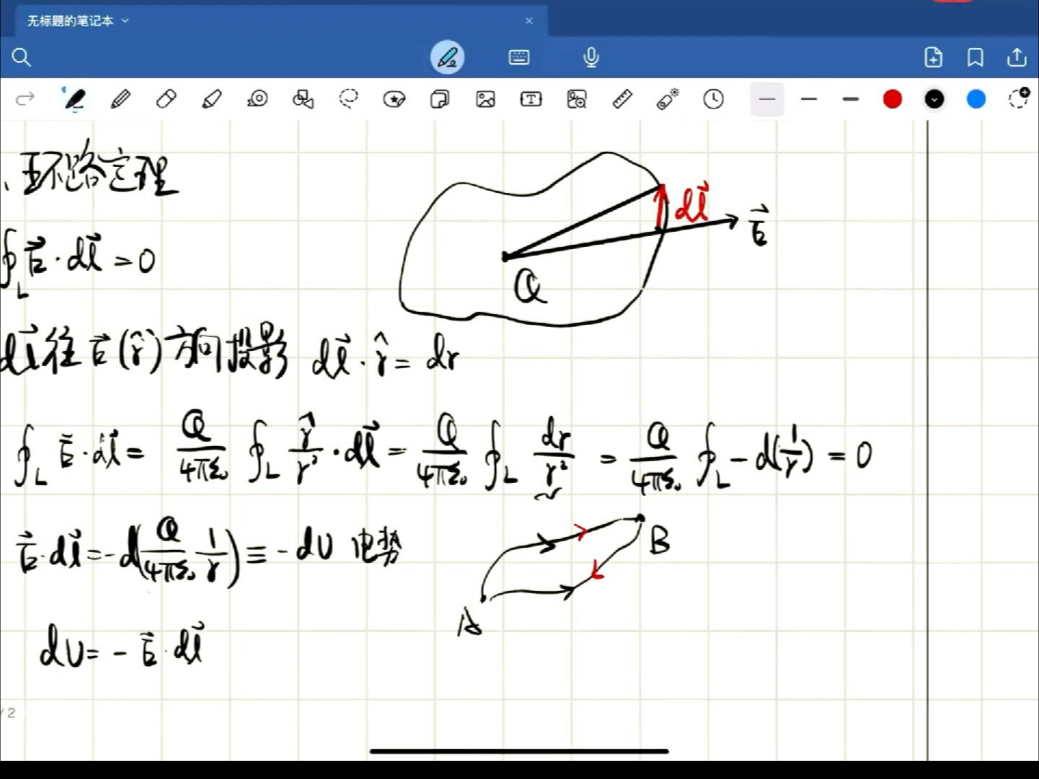 无标题的笔记本
、环路定理
∮_L E⃗·dl⃗ = 0
dl⃗
E⃗
Q
dl⃗往E⃗(r̂)方向投影 dl⃗·r̂ = dr
∮_L E⃗·dl⃗ = Q/4πε₀ ∮_L r̂/r²·dl⃗ = Q/4πε₀ ∮_L dr/r² = Q/4πε₀ ∮_L -d(1/r) = 0
E⃗·dl⃗ = -d(Q/4πε₀ 1/r) ≡ -dU 电势
B
A
dU = -E⃗·dl⃗
/2